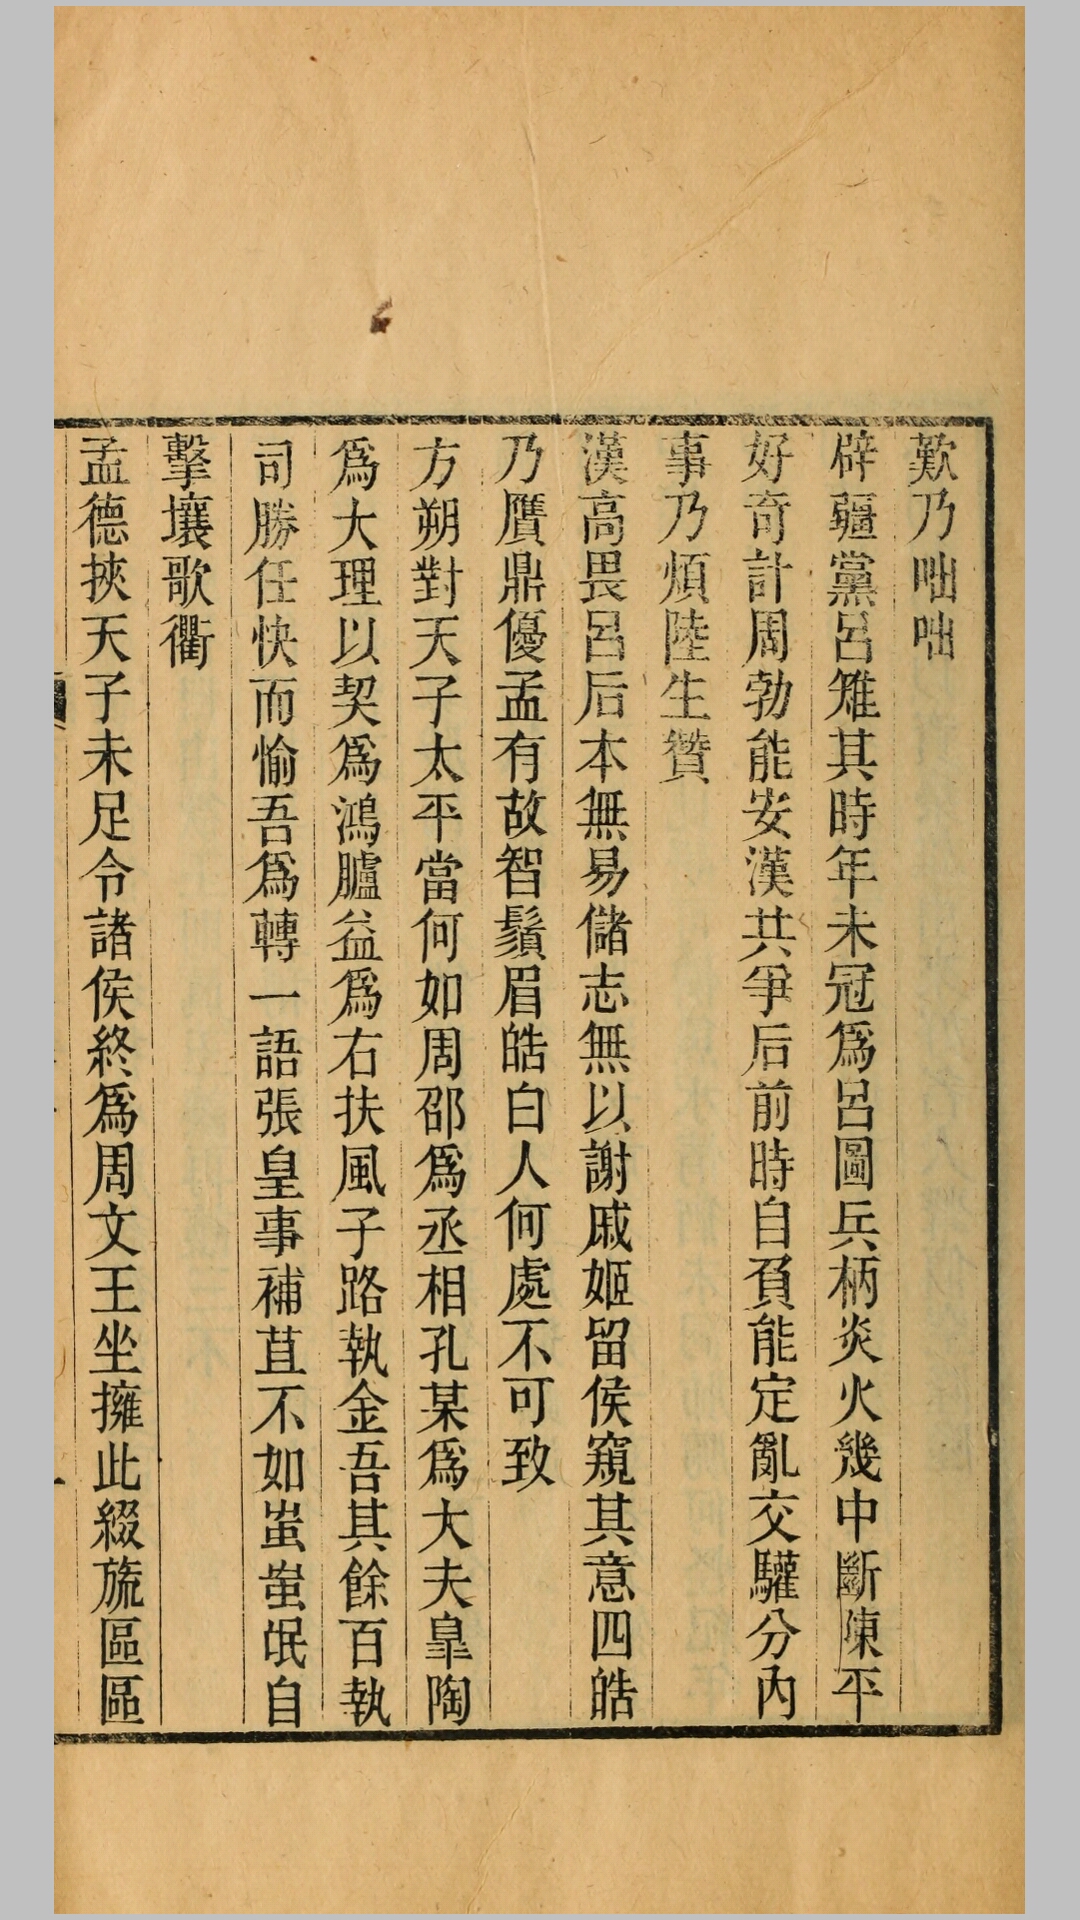 歎乃咄咄
辟疆黨呂雉其時年未冠爲呂圖兵柄炎火幾中斷陳平
好奇計周勃能安漢共爭后前時自負能定亂交驩分內
事乃煩陸生贊
漢高畏呂后本無易儲志無以謝戚姬留侯窺其意四皓
乃贗鼎優孟有故智鬚眉皓白人何處不可致
方朔對天子太平當何如周邵爲丞相孔某爲大夫臯陶
爲大理以契爲鴻臚益爲右扶風子路執金吾其餘百執
司勝任快而愉吾爲轉一語張皇事補苴不如蚩蚩氓自
擊壤歌衢
孟德挾天子未足令諸侯終爲周文王坐擁此綴旒區區